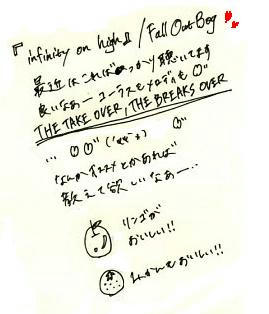 『infinity on high』/Fall Out Boy
最近はこればっかり聴いてます
良いなぁー コーラスもメロディも
THE TAKE OVER, THE BREAKS OVER
なんかオススメとかあれば
教えて欲しいなぁー…
リンゴが
おいしい!!
みかんもおいしい!!